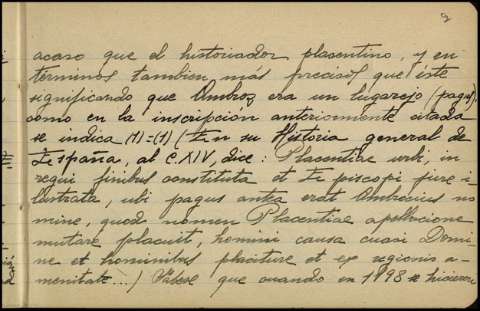 acaso que el historiador placentino, y en
terminos tambien más precisos que éste
significando que Ambróz era un lugarejo (pagus)
como en la inscripción anteriormente citada
se indica (1)=(1) (En su Historia general de
España, al C. XIV, dice: Placentiae urbi, in
regni finibus constituta et Episcopi fuere i-
lustrata, ubi pagus antea erat Ambrocius no
mine, quod nomen Placentiae apellacione
mutare placuit, homini causa cuasi Domi-
ne et hominibus placiture et ex regionis a-
menitate...) Vese que cuando en 1898 se hicieron